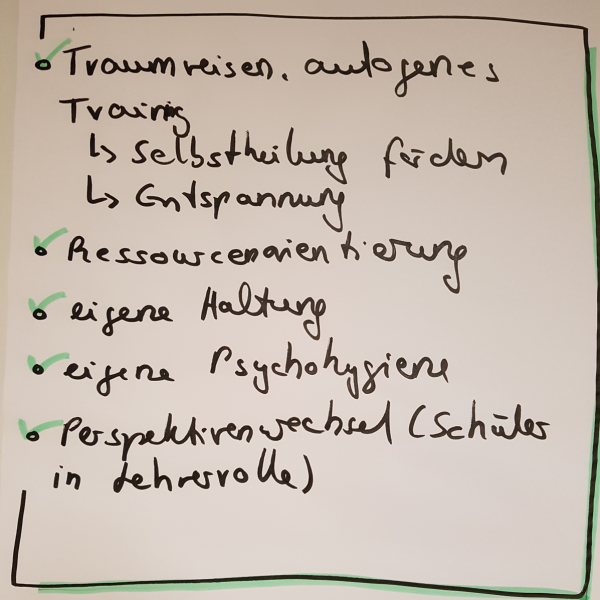 • Traumreisen, autogenes
Training
↳ Selbstheilung fördern
↳ Entspannung
• Ressourcenorientierung
• eigene Haltung
• eigene Psychohygiene
• Perspektivenwechsel (Schüler
in Lehrerrolle)